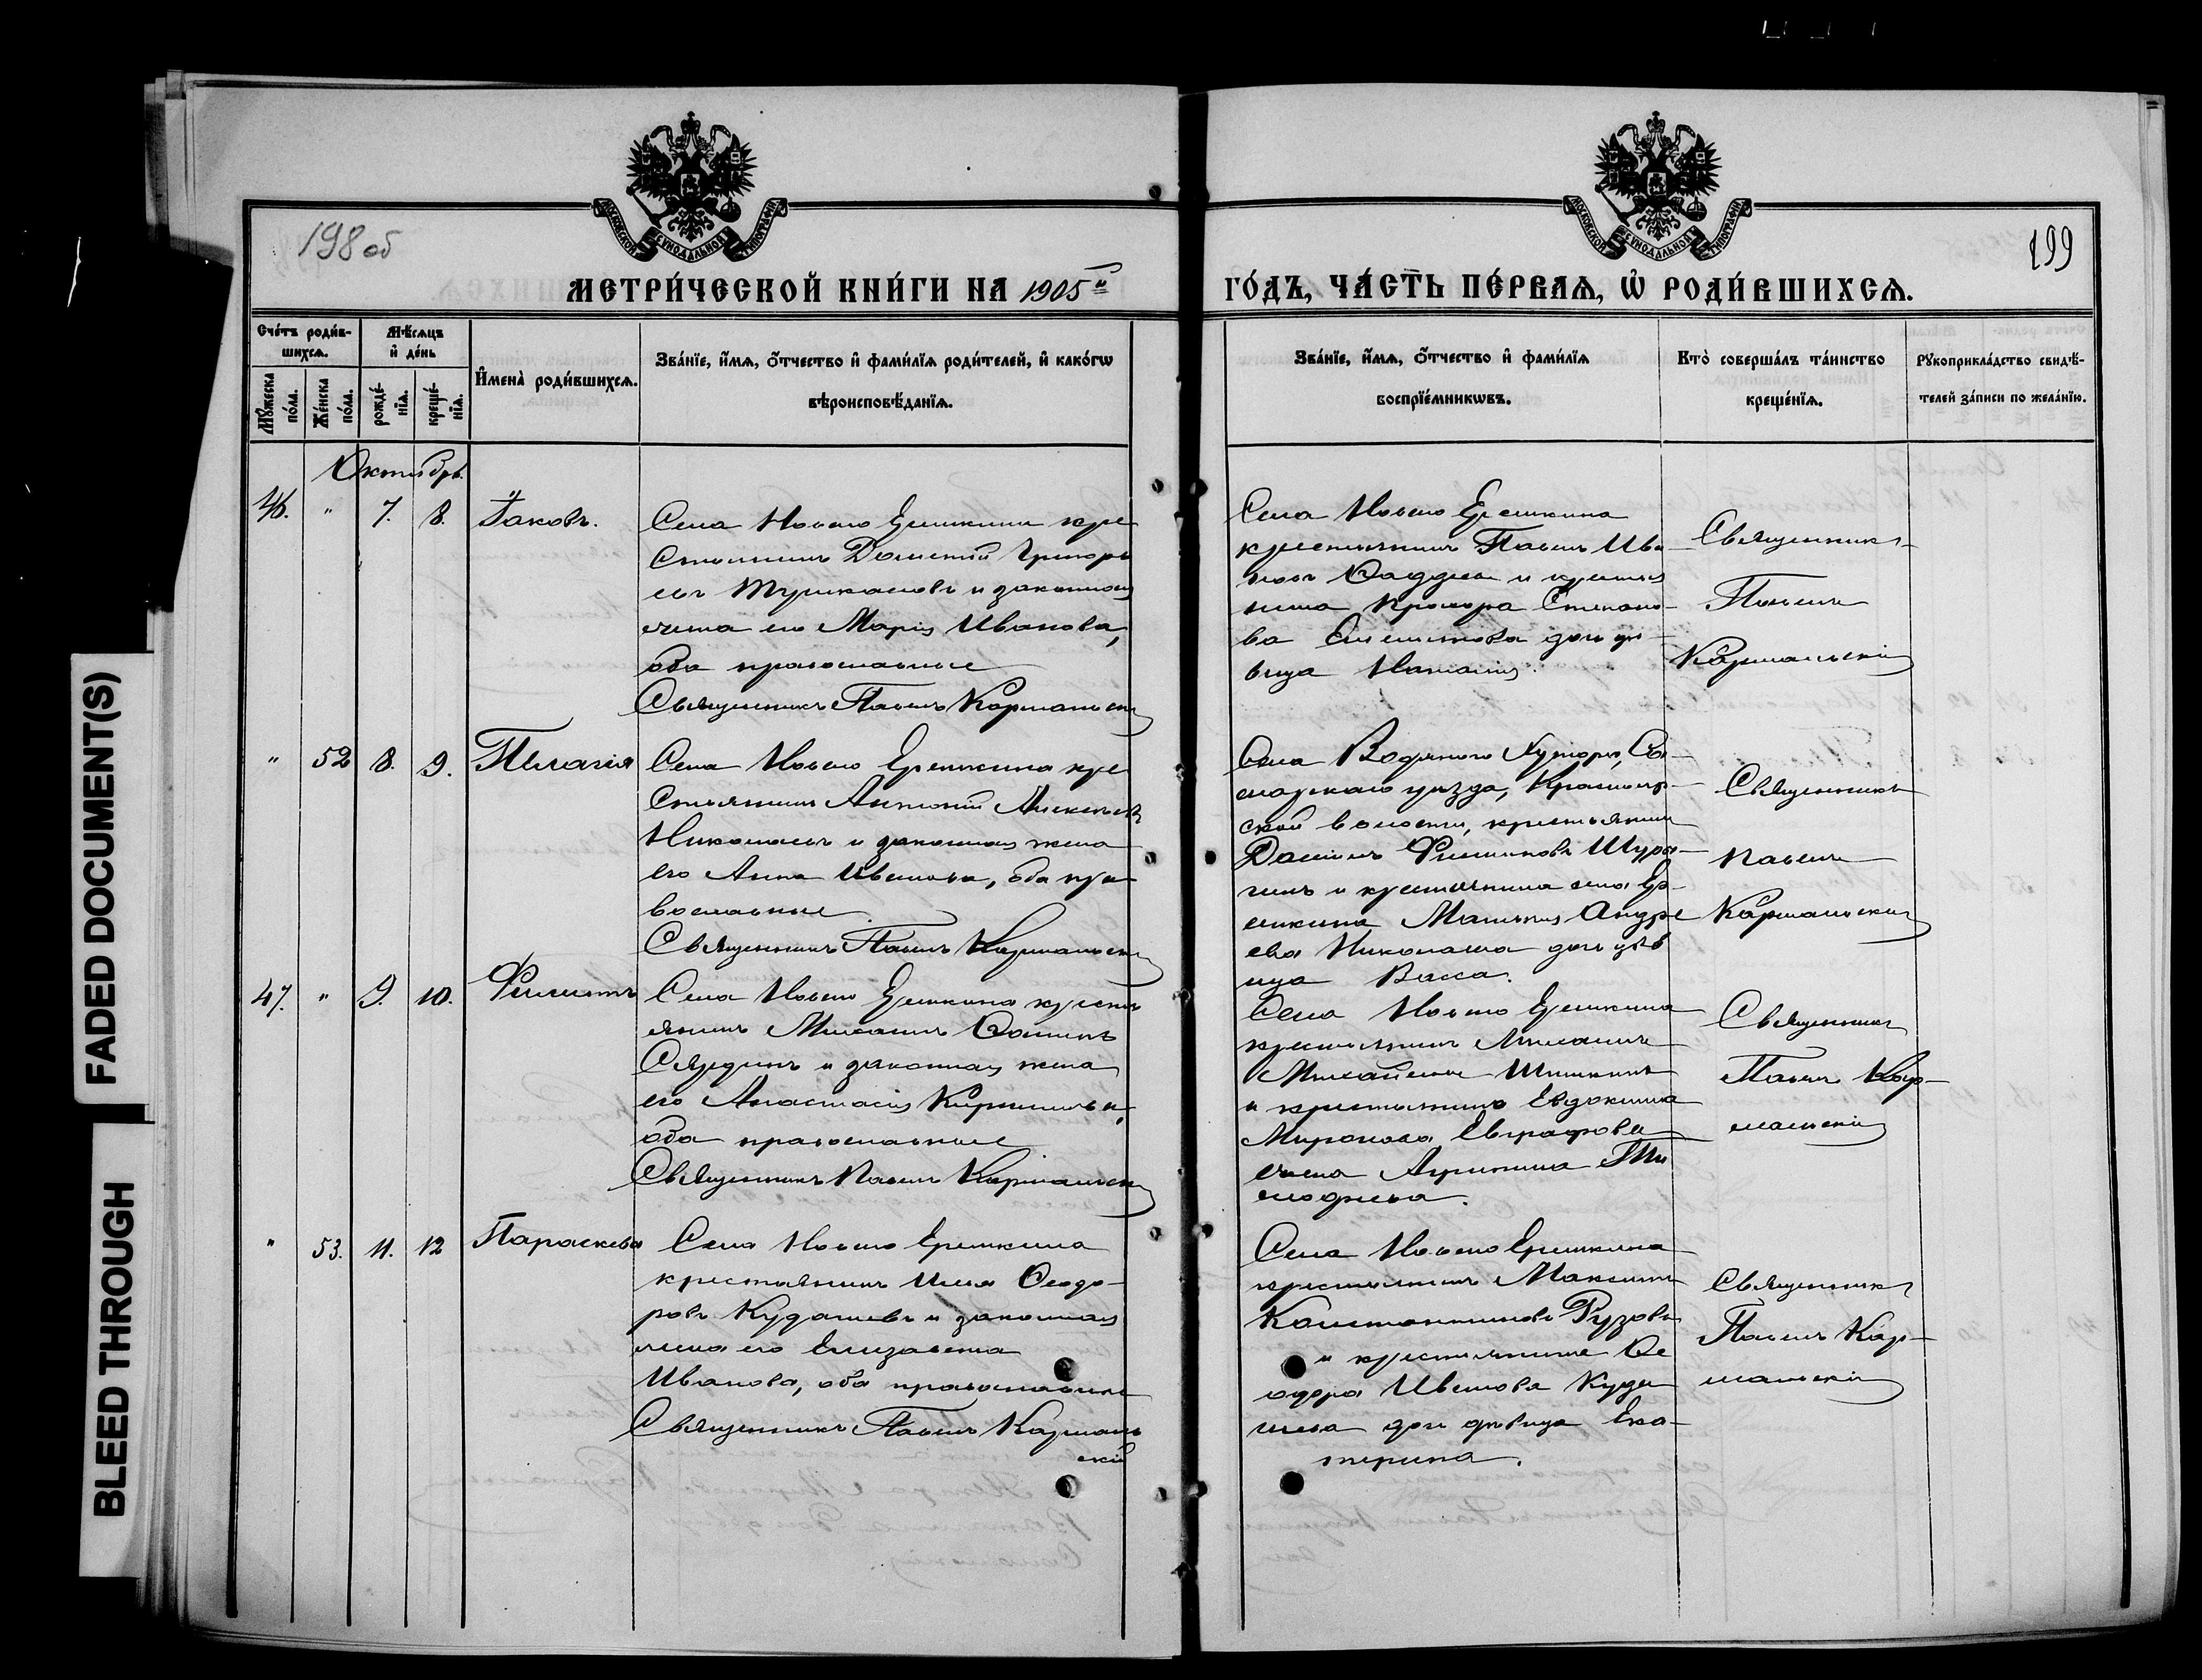 FADED DOCUMENT(S)
BLEED THROUGH
198 об
199
МОСКОВСКОЙ СѴНОДАЛЬНОЙ ТИПОГРАФІИ
МОСКОВСКОЙ СѴНОДАЛЬНОЙ ТИПОГРАФІИ
МЕТРИ́ЧЕСКОЙ КНИ́ГИ НА 1905й
ГО́ДЪ, ЧА́СТЬ ПЕ́РВАѦ, Ѡ҆ РОДИ́ВШИХСѦ.
Сче́тъ роди́в-
шихсѧ.
Мꙋжеска
по́ла.
Же́нска
по́ла.
Мѣ́сѧцъ
и҆ де́нь
рожде́-
нїѧ.
креще́-
нїѧ.
И҆мена̀ роди́вшихсѧ.
Зва́нїе, и҆́мѧ, ѻ҆́тчество и҆ фами́лїѧ роди́телей, и҆ како́гѡ
вѣроисповѣ́данїѧ.
Зва́нїе, и҆́мѧ, ѻ҆́тчество и҆ фами́лїѧ
воспрїе́мникѡвъ.
Кто̀ соверша́лъ та́инство
креще́нїѧ.
Рꙋкоприкла́дство свидѣ́-
телей за́писи по жела́нїю.
Октябрь.
46. " 7. 8. Іаковъ.
Села Новаго Ерешкина кре
стьянинъ Дометій Григорь
евъ и законная
жена его Марія Иванова,
оба православные
Священникъ Павелъ Кармальскій
Села Новаго Ерешкина
крестьянинъ Павелъ Ива-
новъ и крестья
нина Степано-
ва дочь дѣ-
вица Наталія.
Священникъ
Павелъ
Кармальскій
" 52 8. 9. Пелагія
Села Новаго Ерешкина кре
стьянинъ Антоній Алексѣевъ
Николаевъ и законная жена
его Анна Иванова, оба пра
вославные
Священникъ Павелъ Кармальскій
Села Водяного Хутора, Са-
марскаго уѣзда,
ской волости, крестьянинъ
Даніилъ Филиповъ Шура-
гинъ и крестьянина села Ер-
ешкина Андре
ева Николаева дочь дѣв
ица Васса.
Священникъ
Павелъ
Кармальскій
47. " 9. 10. Филиппъ
Села Новаго Ерешкина кресть
янинъ Михаилъ Ѳоминъ
и законная жена
его Анастасія Кириллова,
оба православные
Священникъ Павелъ Кармальскій
Села Новаго Ерешкина
крестьянинъ Михаилъ
Михайловъ Шишкинъ
и крестьянина Евдокима
Миронова Евграфова
жена Агрипина Ти
моѳеева.
Священникъ
Павелъ Кар-
мальскій
" 53. 11. 12 Параскева
Села Новаго Ерешкина
крестьянинъ Илья Ѳеодо-
ровъ Кудашевъ и законная
жена его Елизавета
Иванова, оба православные
Священникъ Павелъ Кармаль
скій
Села Новаго Ерешкина
крестьянинъ Максимъ
Константиновъ Рузовъ
и крестьянина Ѳе
одора Иванова Куда
шева дочь дѣвица Ека-
терина.
Священникъ
Павелъ Кар-
мальскій